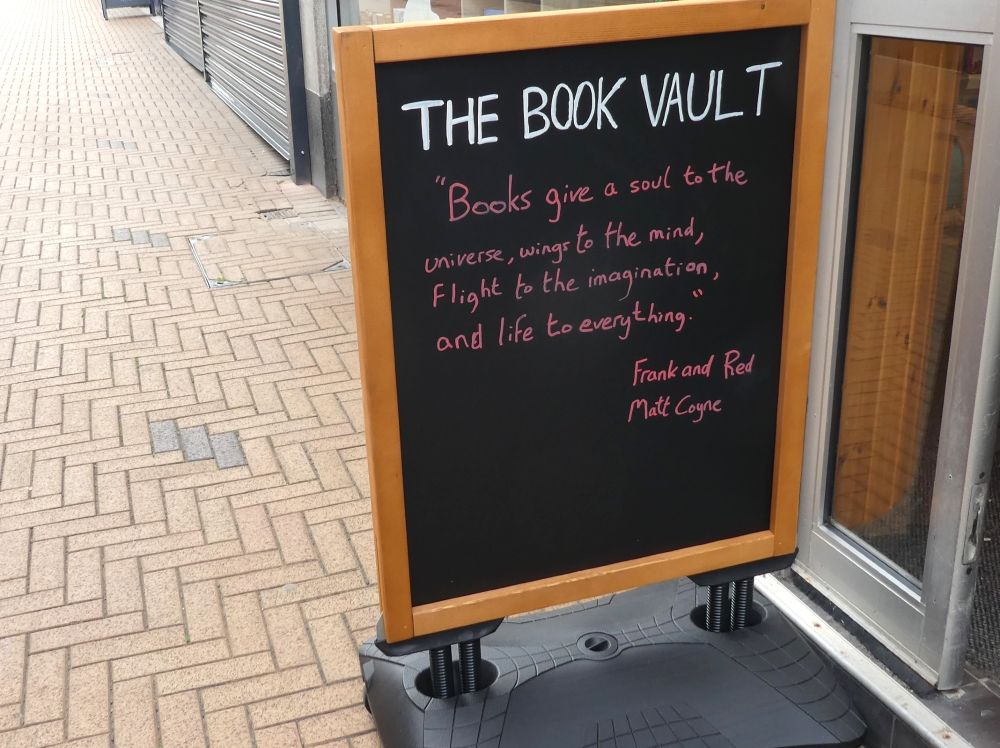 THE BOOK VAULT
"Books give a soul to the
universe, wings to the mind,
Flight to the imagination,
and life to everything."
Frank and Red
Matt Coyne